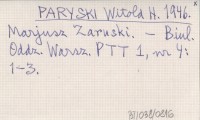 PARYSKI Witold H. 1946.
Marjusz Zaruski. – Biul.
Oddz. Warsz. PTT 1, nr 4:
1–3.